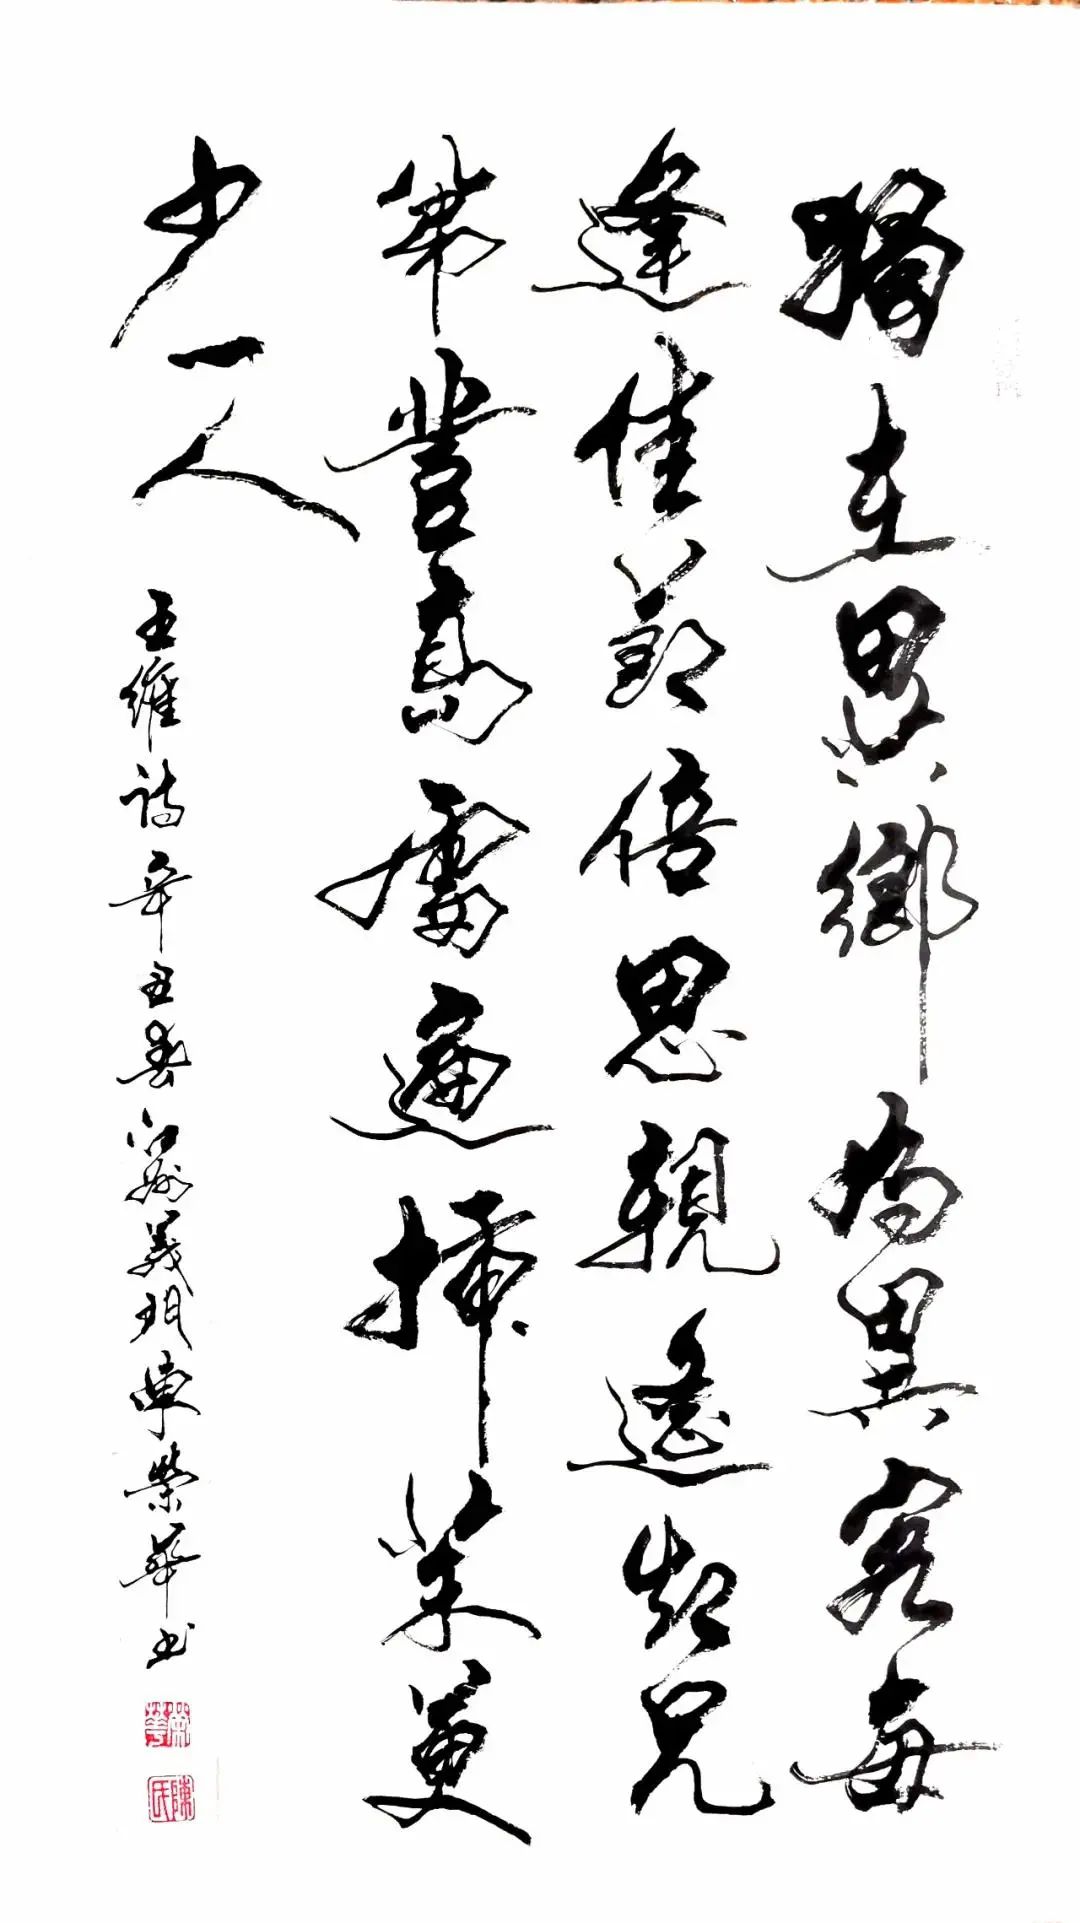 獨在異鄉為異客每
逢佳節倍思親遙知兄
弟登高處遍插茱萸
少一人
王維詩辛丑春江蘇義玥陳榮華書
榮華
陳氏